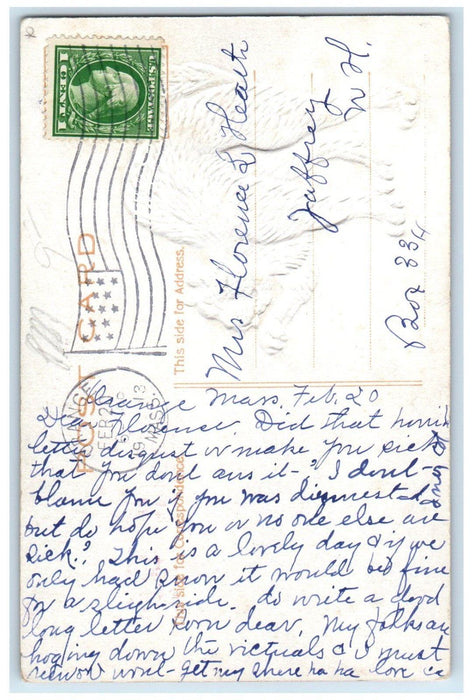 1 CENT 1
U.S. POSTAGE
POST CARD
This side for Address.
ORANGE
FEB 2
19 13
MASS.
Mrs Florence L Heath
Jaffrey
N H.
Box 334
Orange Mass. Feb. 20
Dear Florence. Did that horrid
letter disgust or make you sick
that you dont ans it - I dont
blame you if you was
but do hope you or no one else are
sick? This is a lovely day & if we
only had snow it would be fine
for a sleighride. do write a good
long letter soon dear, My folks are
hoging down the victuals & I must
wont get my share ha ha love